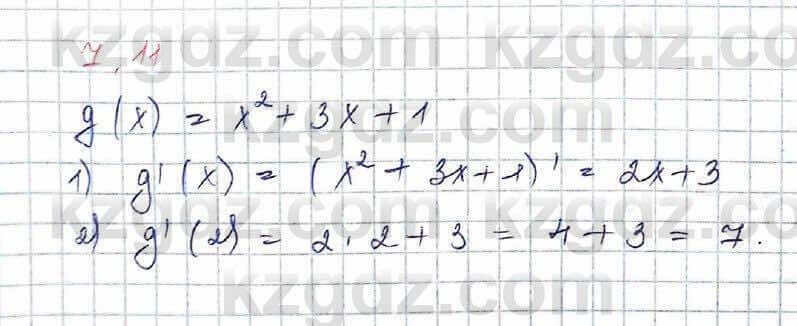 kzgdz.com kzgdz.com
7.11
g(x) = x² + 3x + 1
kzgdz.com kzgdz.com
1) g'(x) = (x² + 3x + 1)' = 2x + 3
kzgdz.com kzgdz.com
2) g'(2) = 2 · 2 + 3 = 4 + 3 = 7.
kzgdz.com kzgdz.com